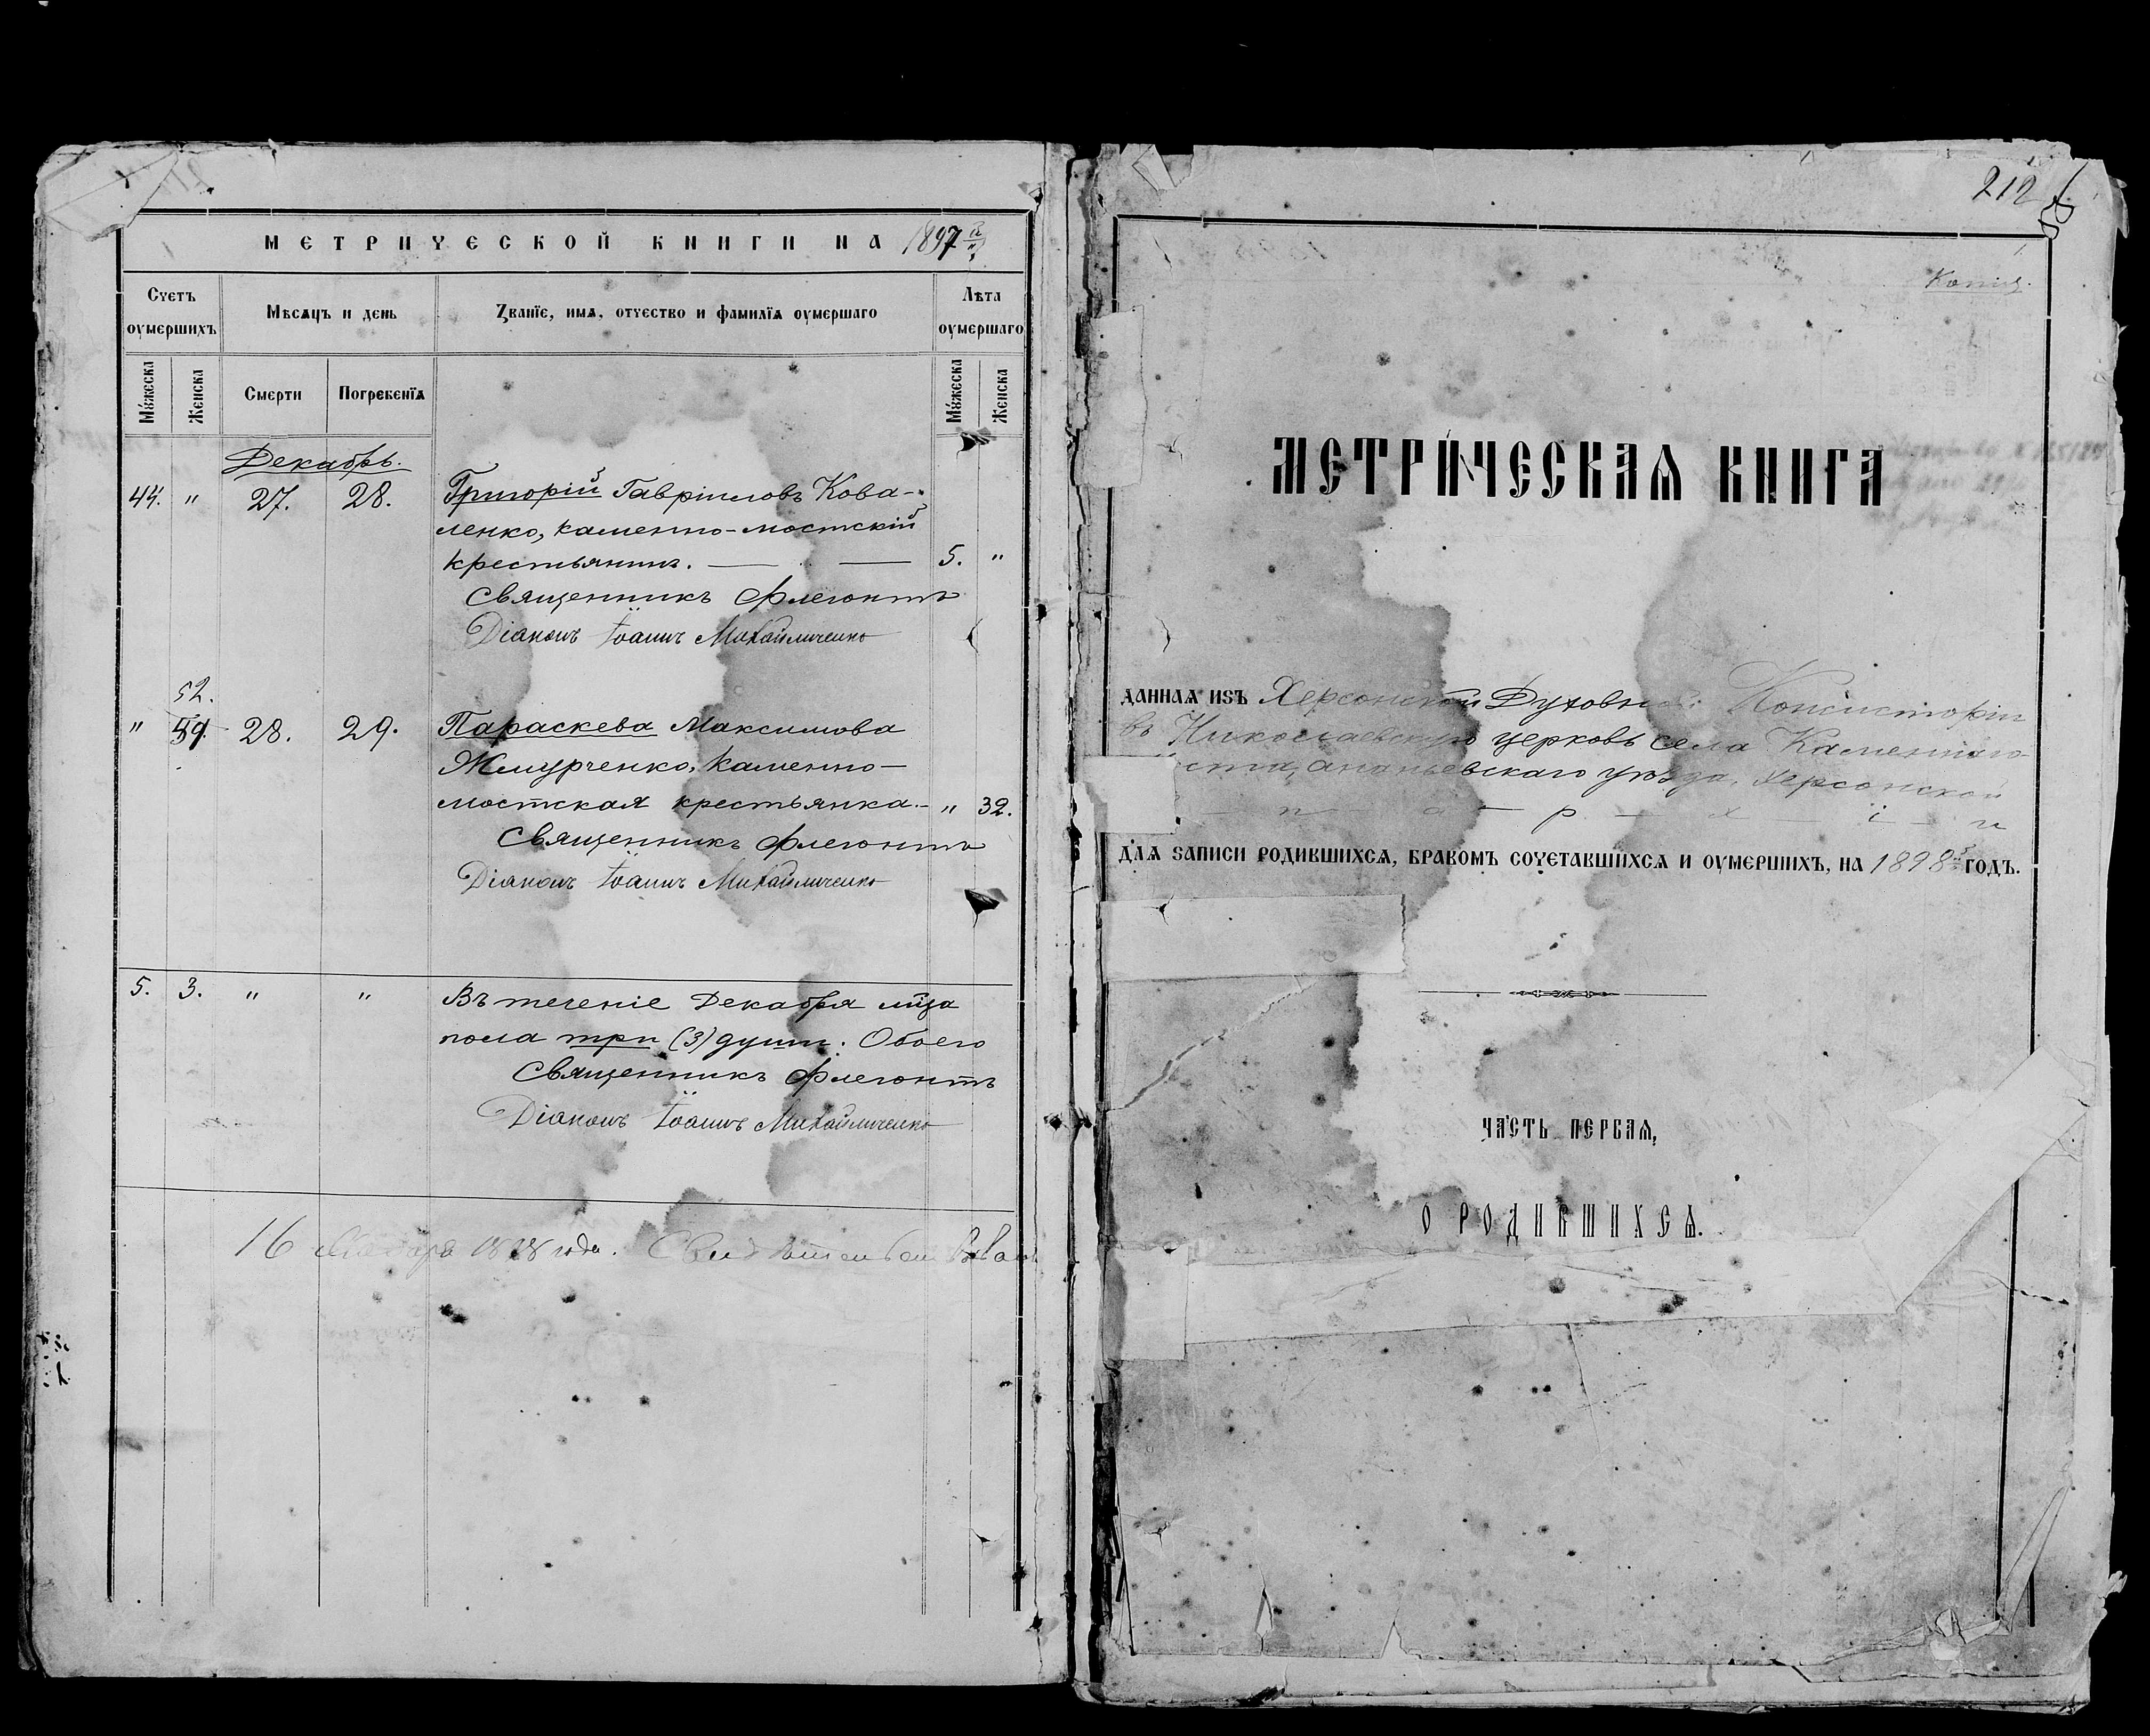 МЕТРИЧЕСКОЙ КНИГИ НА 1897
Счетъ оумершихъ
Мѣсяцъ и день
Званїе, имя, отчество и фамилїя оумершаго
Лѣта оумершаго
Мꙋжеска
Женска
Смерти
Погребенїя
Мꙋжеска
Женска
Декабрь.
44. " 27. 28. Григорій Гавріиловъ Кова-
ленко, каменно-мостскій
крестьянинъ. — — 5. "
Священникъ Флегонтъ
Діаконъ Іоаннъ Михайличенко
52.
" 59. 28. 29. Параскева Максимова
Жмурченко, каменно-
мостская крестьянка. - " 32.
Священникъ Флегонтъ
Діаконъ Іоаннъ Михайличенко
5. 3. " " Въ теченіе Декабря мѣца
пола три (3) души. Обоего
Священникъ Флегонтъ
Діаконъ Іоаннъ Михайличенко
16 1898 года.
212
Копія.
МЕТРИЧЕСКАЯ КНИГА
ДАННАЯ ИЗЪ Херсонской Духовной Консисторіи
въ Николаевскую церковь села Каменнаго-
Ананьевскаго уѣзда, Херсонской
п — а — р — х — і — и
ДЛЯ ЗАПИСИ РОДИВШИХСЯ, БРАКОМЪ СОЧЕТАВШИХСЯ И ОУМЕРШИХЪ, НА 1898 ГОДЪ.
ЧАСТЬ ПЕРВАЯ,
О РОДИВШИХСЯ.